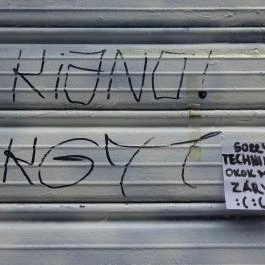 KIANO!
KGYT
SORRY
TECHNI
OKOK M
ZÁRV
:(:(